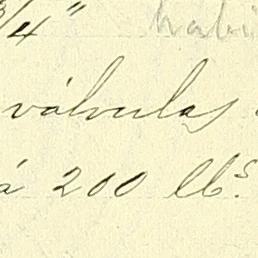 3/4"
válvulas
á 200 lbs.